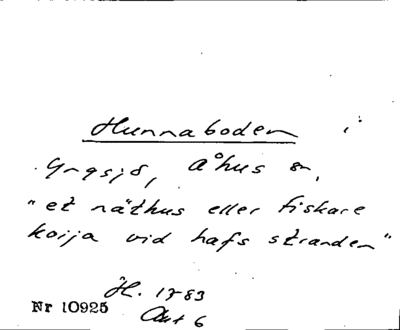 Hunnaboden i
Yngsjö, Åhus sn,
"et näthus eller fiskare
koija vid hafs stranden"
H. 1783
Akt 6
Nr 10925